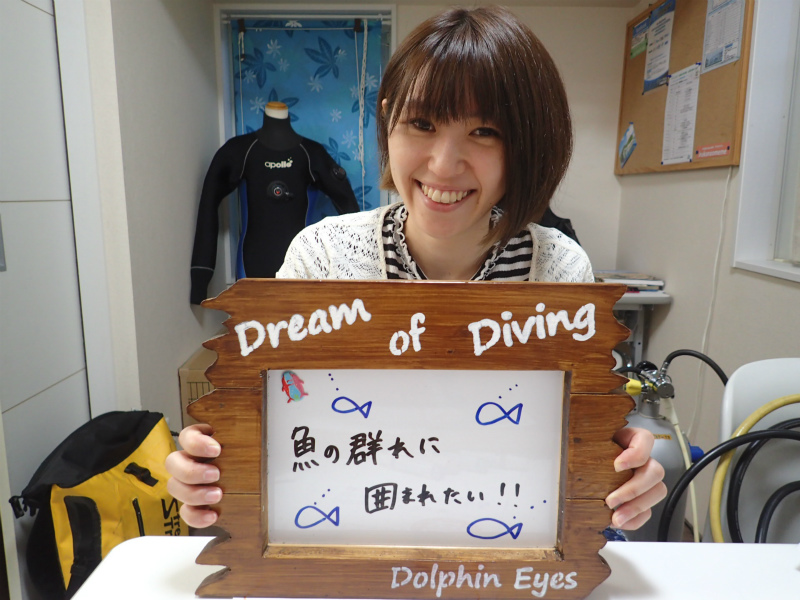 apollo
Dream of Diving
魚の群れに
囲まれたい!!
Dolphin Eyes